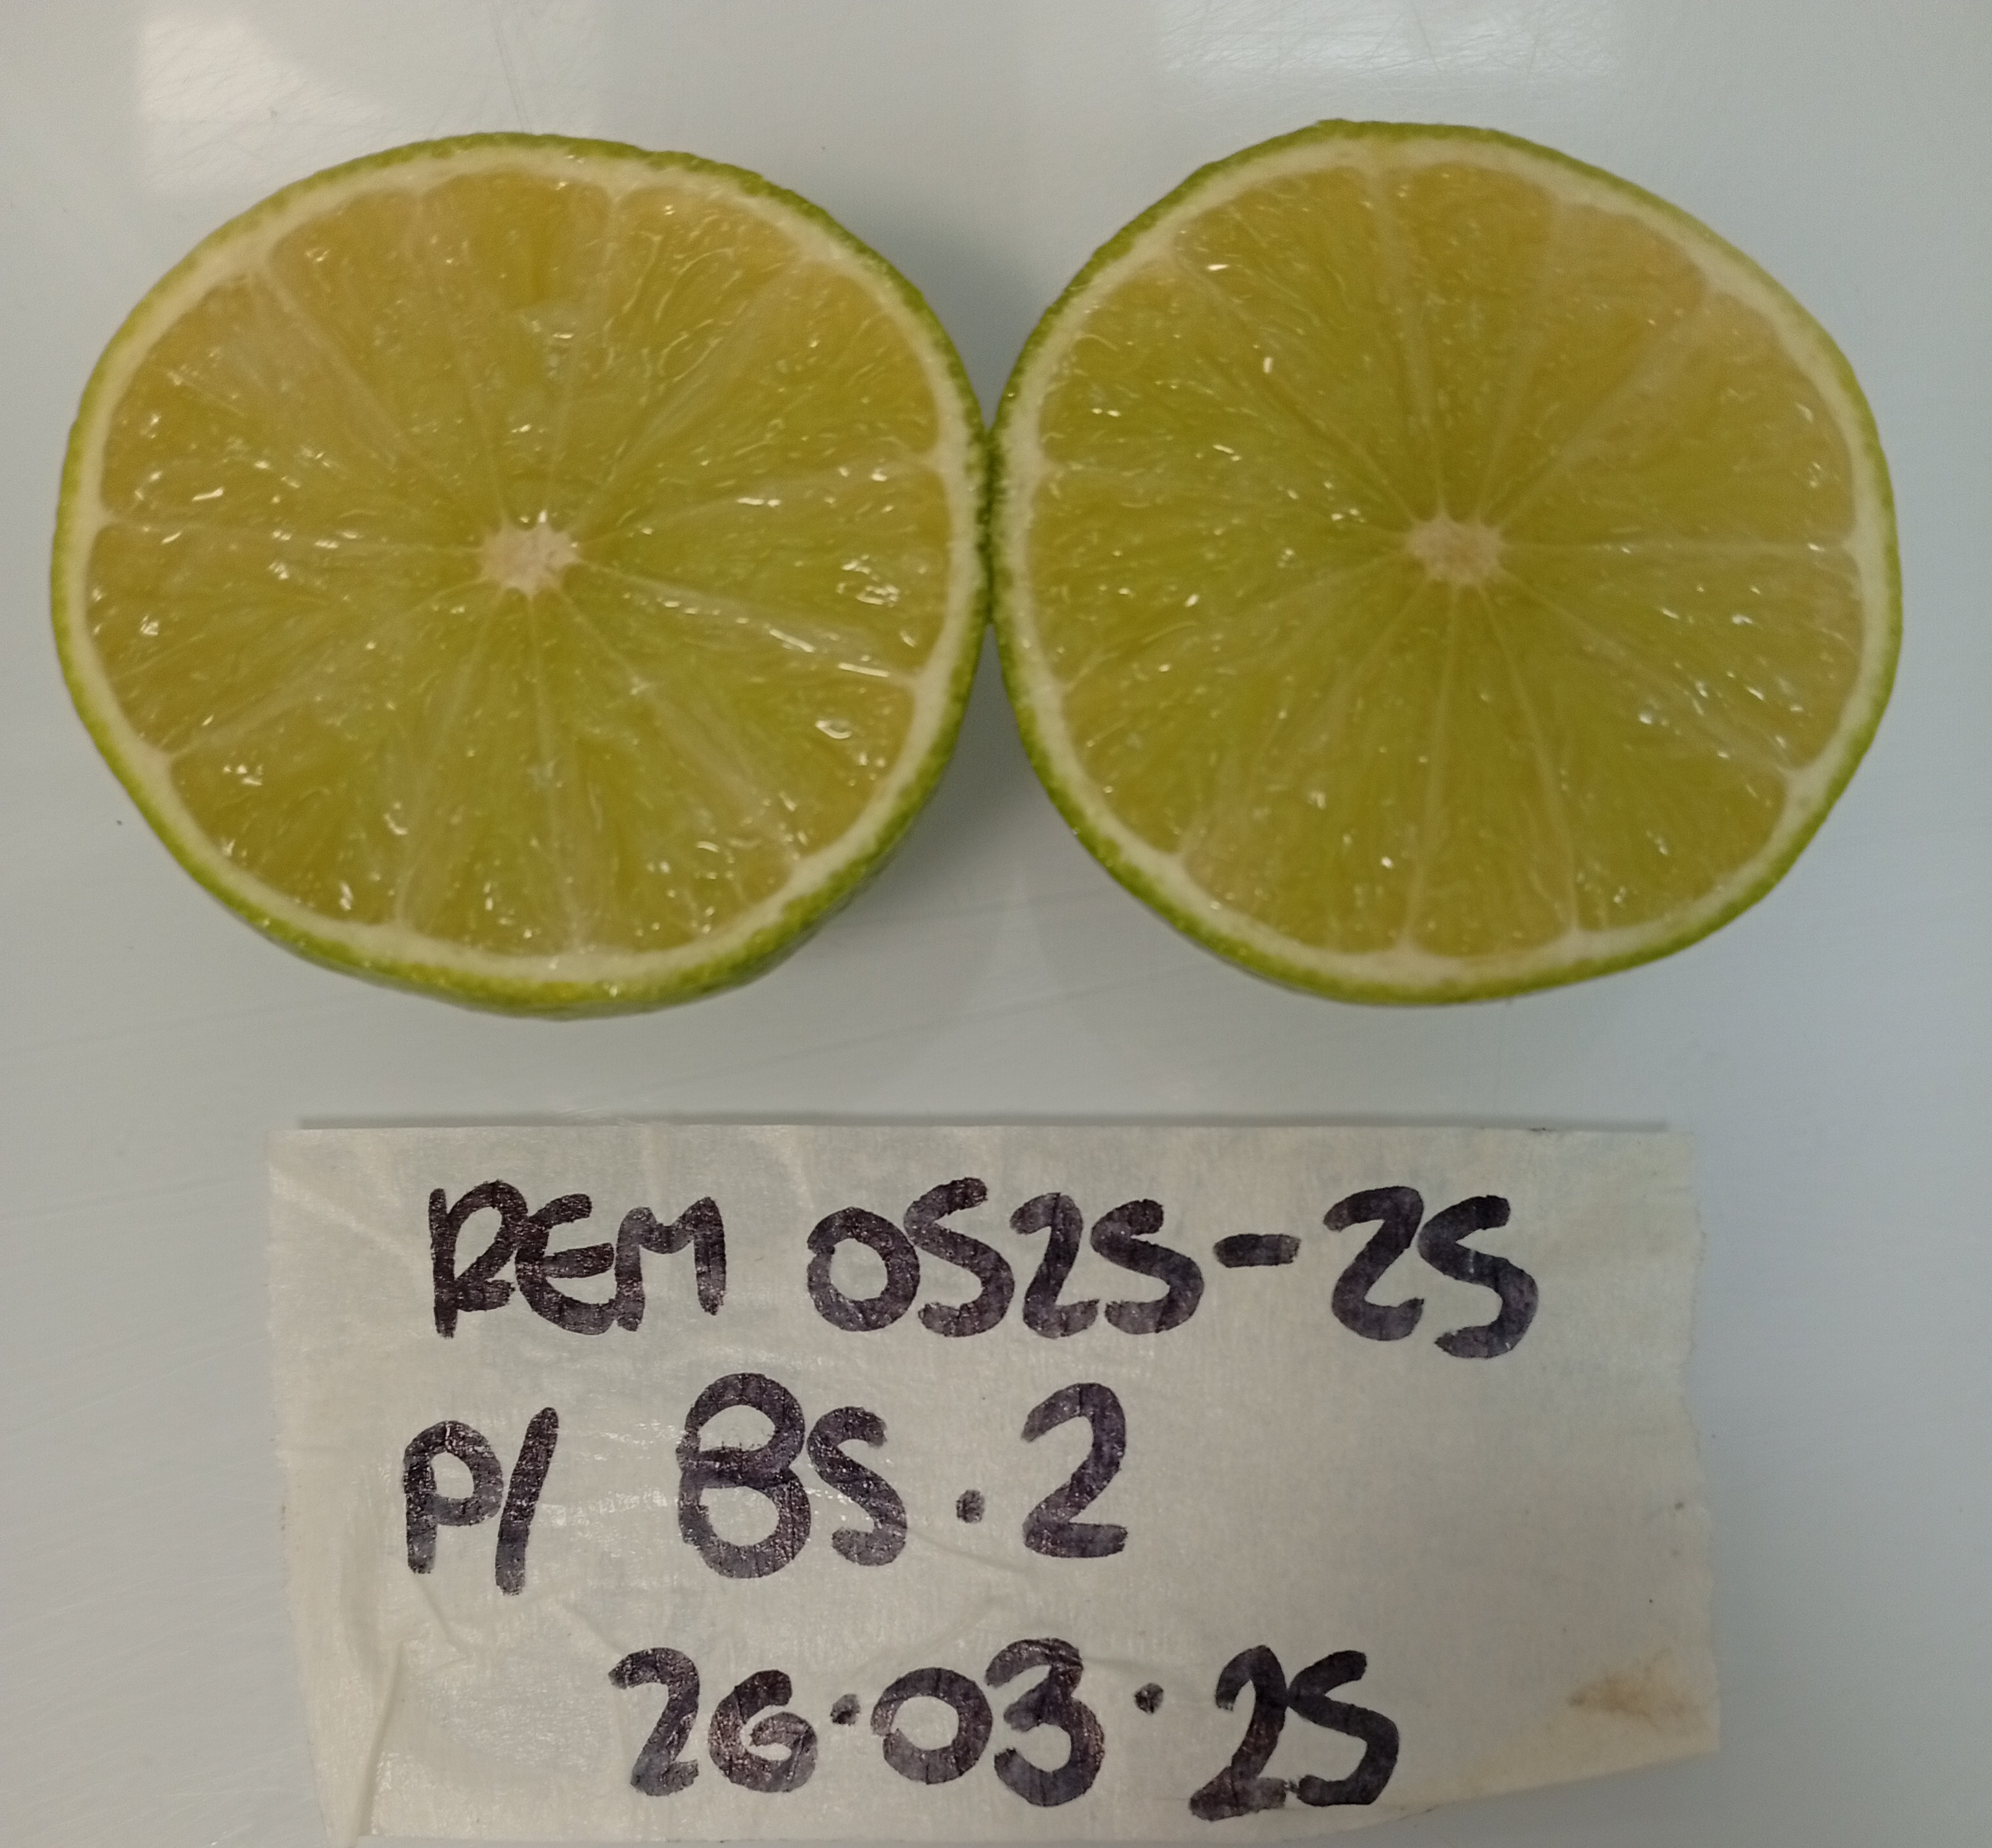 REM 0525-25
P/ 85.2
26.03.25